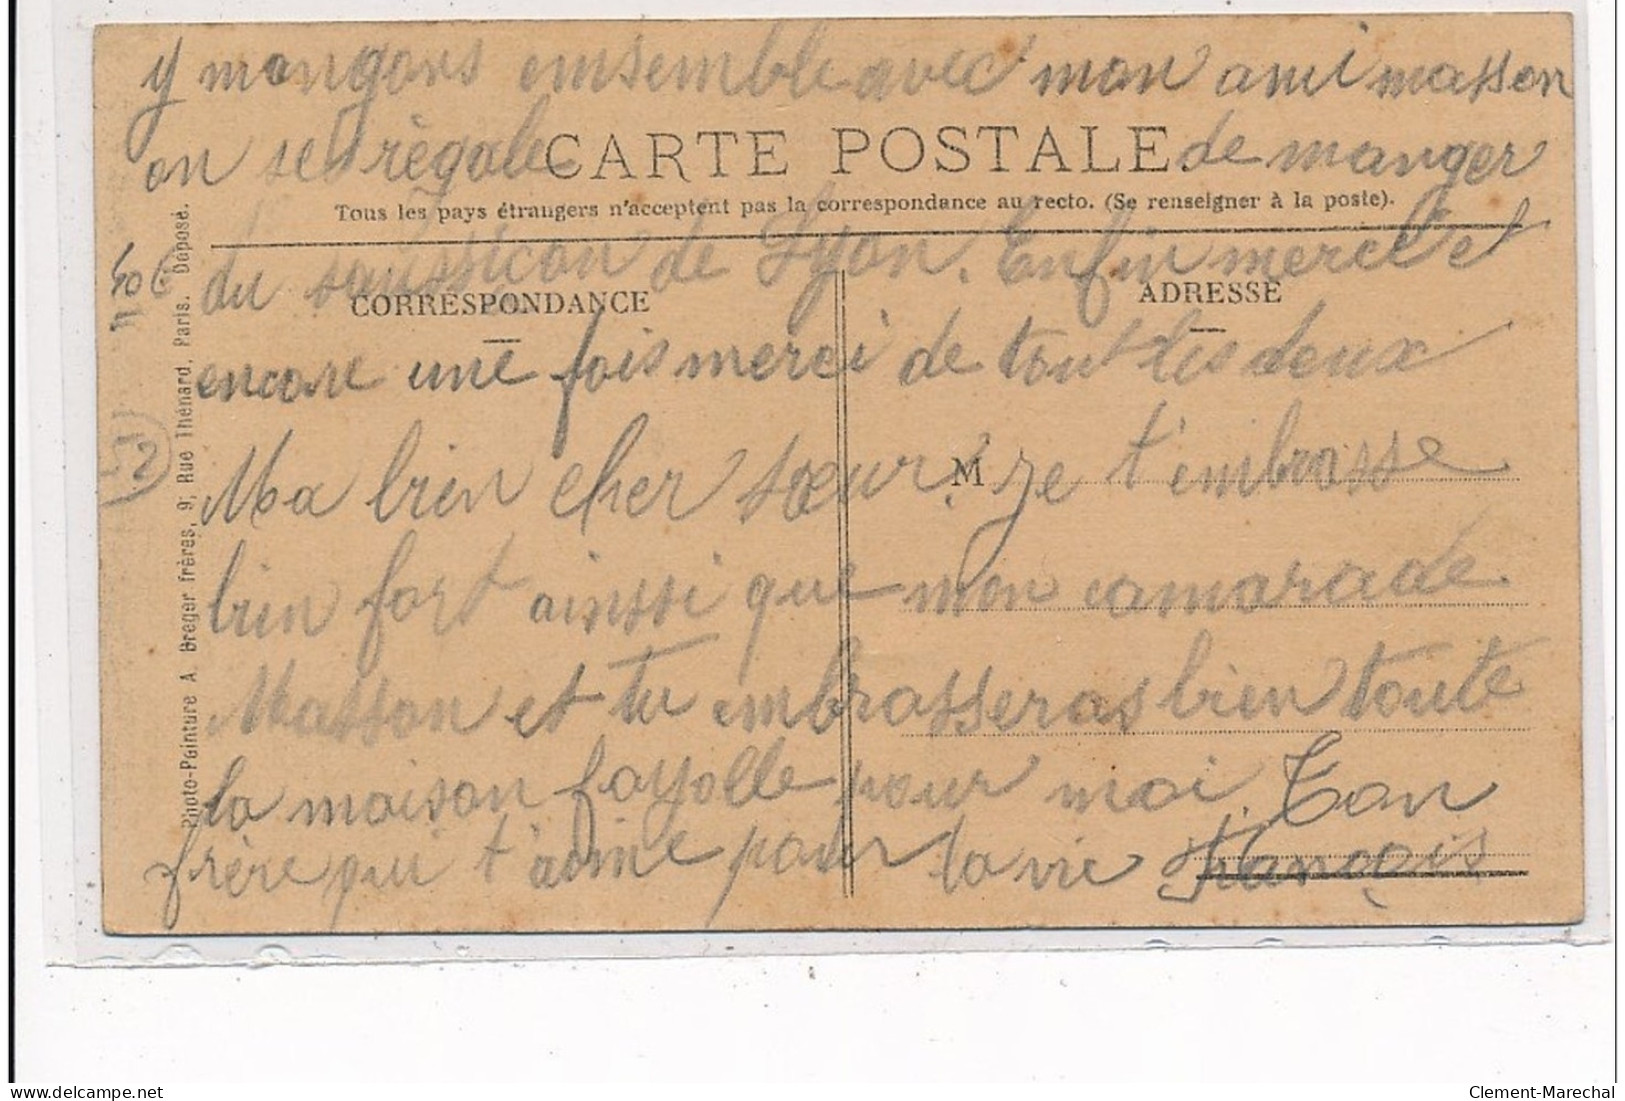 y mangons emsemble avec mon ami masson
on se règale de manger
CARTE POSTALE
Tous les pays étrangers n'acceptent pas la correspondance au recto. (Se renseigner à la poste).
du saussiçon de Lyon. Enfin merci et
CORRESPONDANCE
ADRESSE
encore une fois merci de tout les deux
Ma bien cher sœur je t'embrasse
M
bien fort ainssi que mon camarade
Masson et tu embrasseras bien toute
la maison fayolle pour moi. Ton
frère qui t'aime pour la vie François
Photo-Peinture A. Breger frères, 9, Rue Thénard, Paris. Déposé.
52
delcampe.net
Clement-Marechal